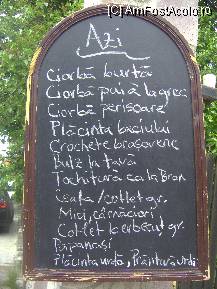 (c) AmFostAcolo.ro
Azi
Ciorbă burtă
Ciorbă pui à la grec
Ciorbă perișoare
Plăcinta baciului
Crochete brașovene
Bulz la tavă
Tochitură ca la Bran
Ceafă/cotlet gr.
Mici, cârnăciori,
Cotlet berbecuț gr.
Papanași
Plăcintă urdă, Prăjitură urdă